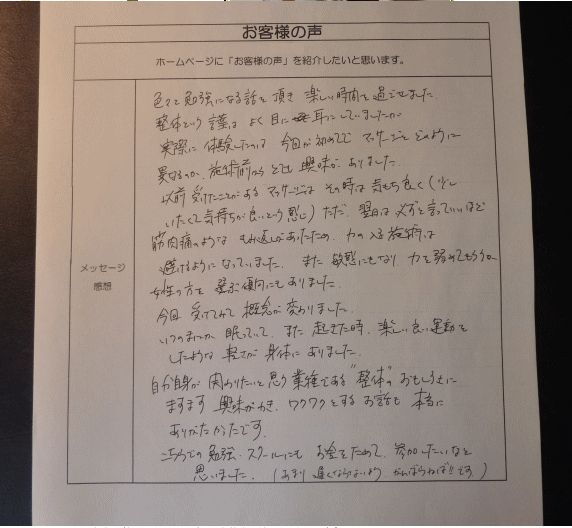 お客様の声
ホームページに「お客様の声」を紹介したいと思います。
メッセージ
感想
色々と勉強になる話を頂き 楽しい時間を過ごせました。
整体という言葉は よく目に 耳にしていましたが
実際に 体験したのは 今回が初めてで マッサージと どのように
異なるのか、施術前から とても 興味が ありました。
以前 受けたことがある マッサージは その時は 気もち良く (少し
いたくて気持ちが良いという感じ) ただ、翌日は 必ずと言っていいほど
筋肉痛のような もみ返しがあったため、力の入る施術は
避けるように なっていました。また 敏感にもなり、力を弱めてもらうか
女性の方を 選ぶ傾向にもありました。
今回 受けてみて 概念が 変わりました。
いつのまにか 眠っていて、また 起きた時、楽しい良い運動を
したような 軽さが 身体に ありました。
自分自身が 関わりたいと思う 業種である "整体" の おもしろさに
ますます 興味がわき、ワクワクとする お話も 本当に
ありがたかったです。
こちらでの勉強・スクールにも お金をためて、参加したいなと
思いました。(あまり 遅くならないよう がんばらねば!!です)